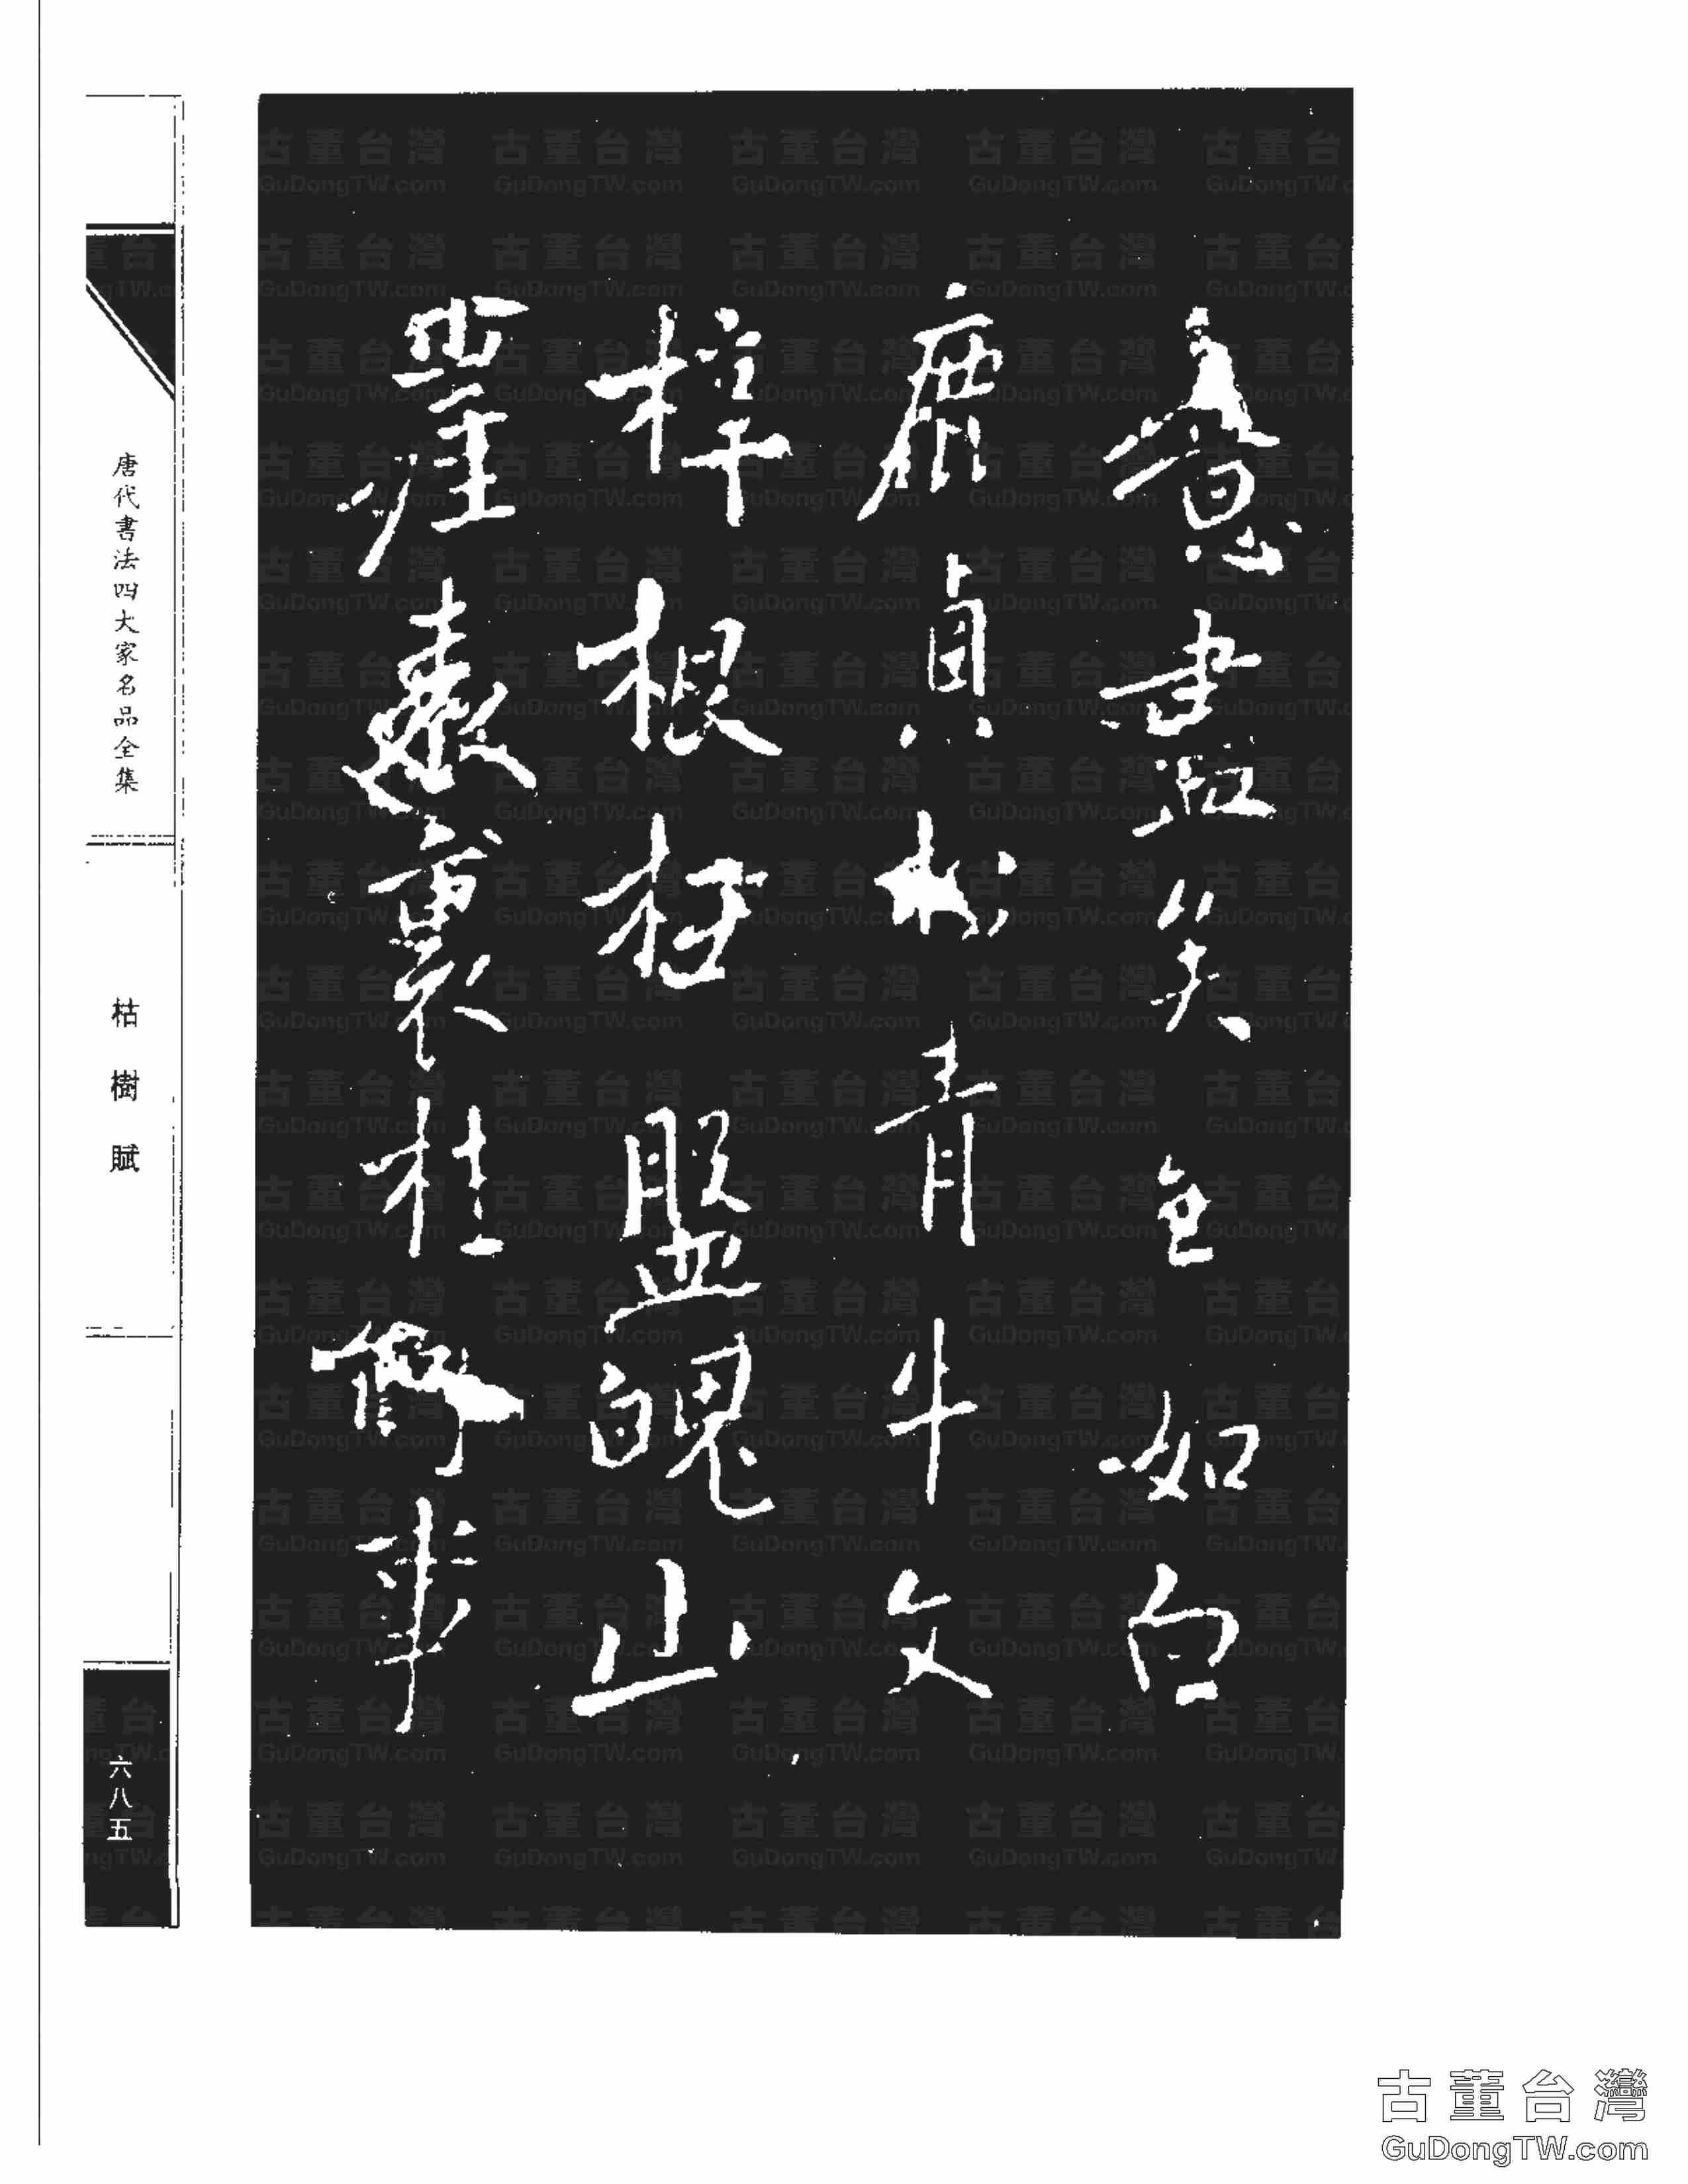 意盡矣至如白
鹿貞松青牛文
梓根柢盤魄山
崖表裏桂何事
唐代書法四大家名品全集
枯樹賦
六八五
古董台灣
GuDongTW.com